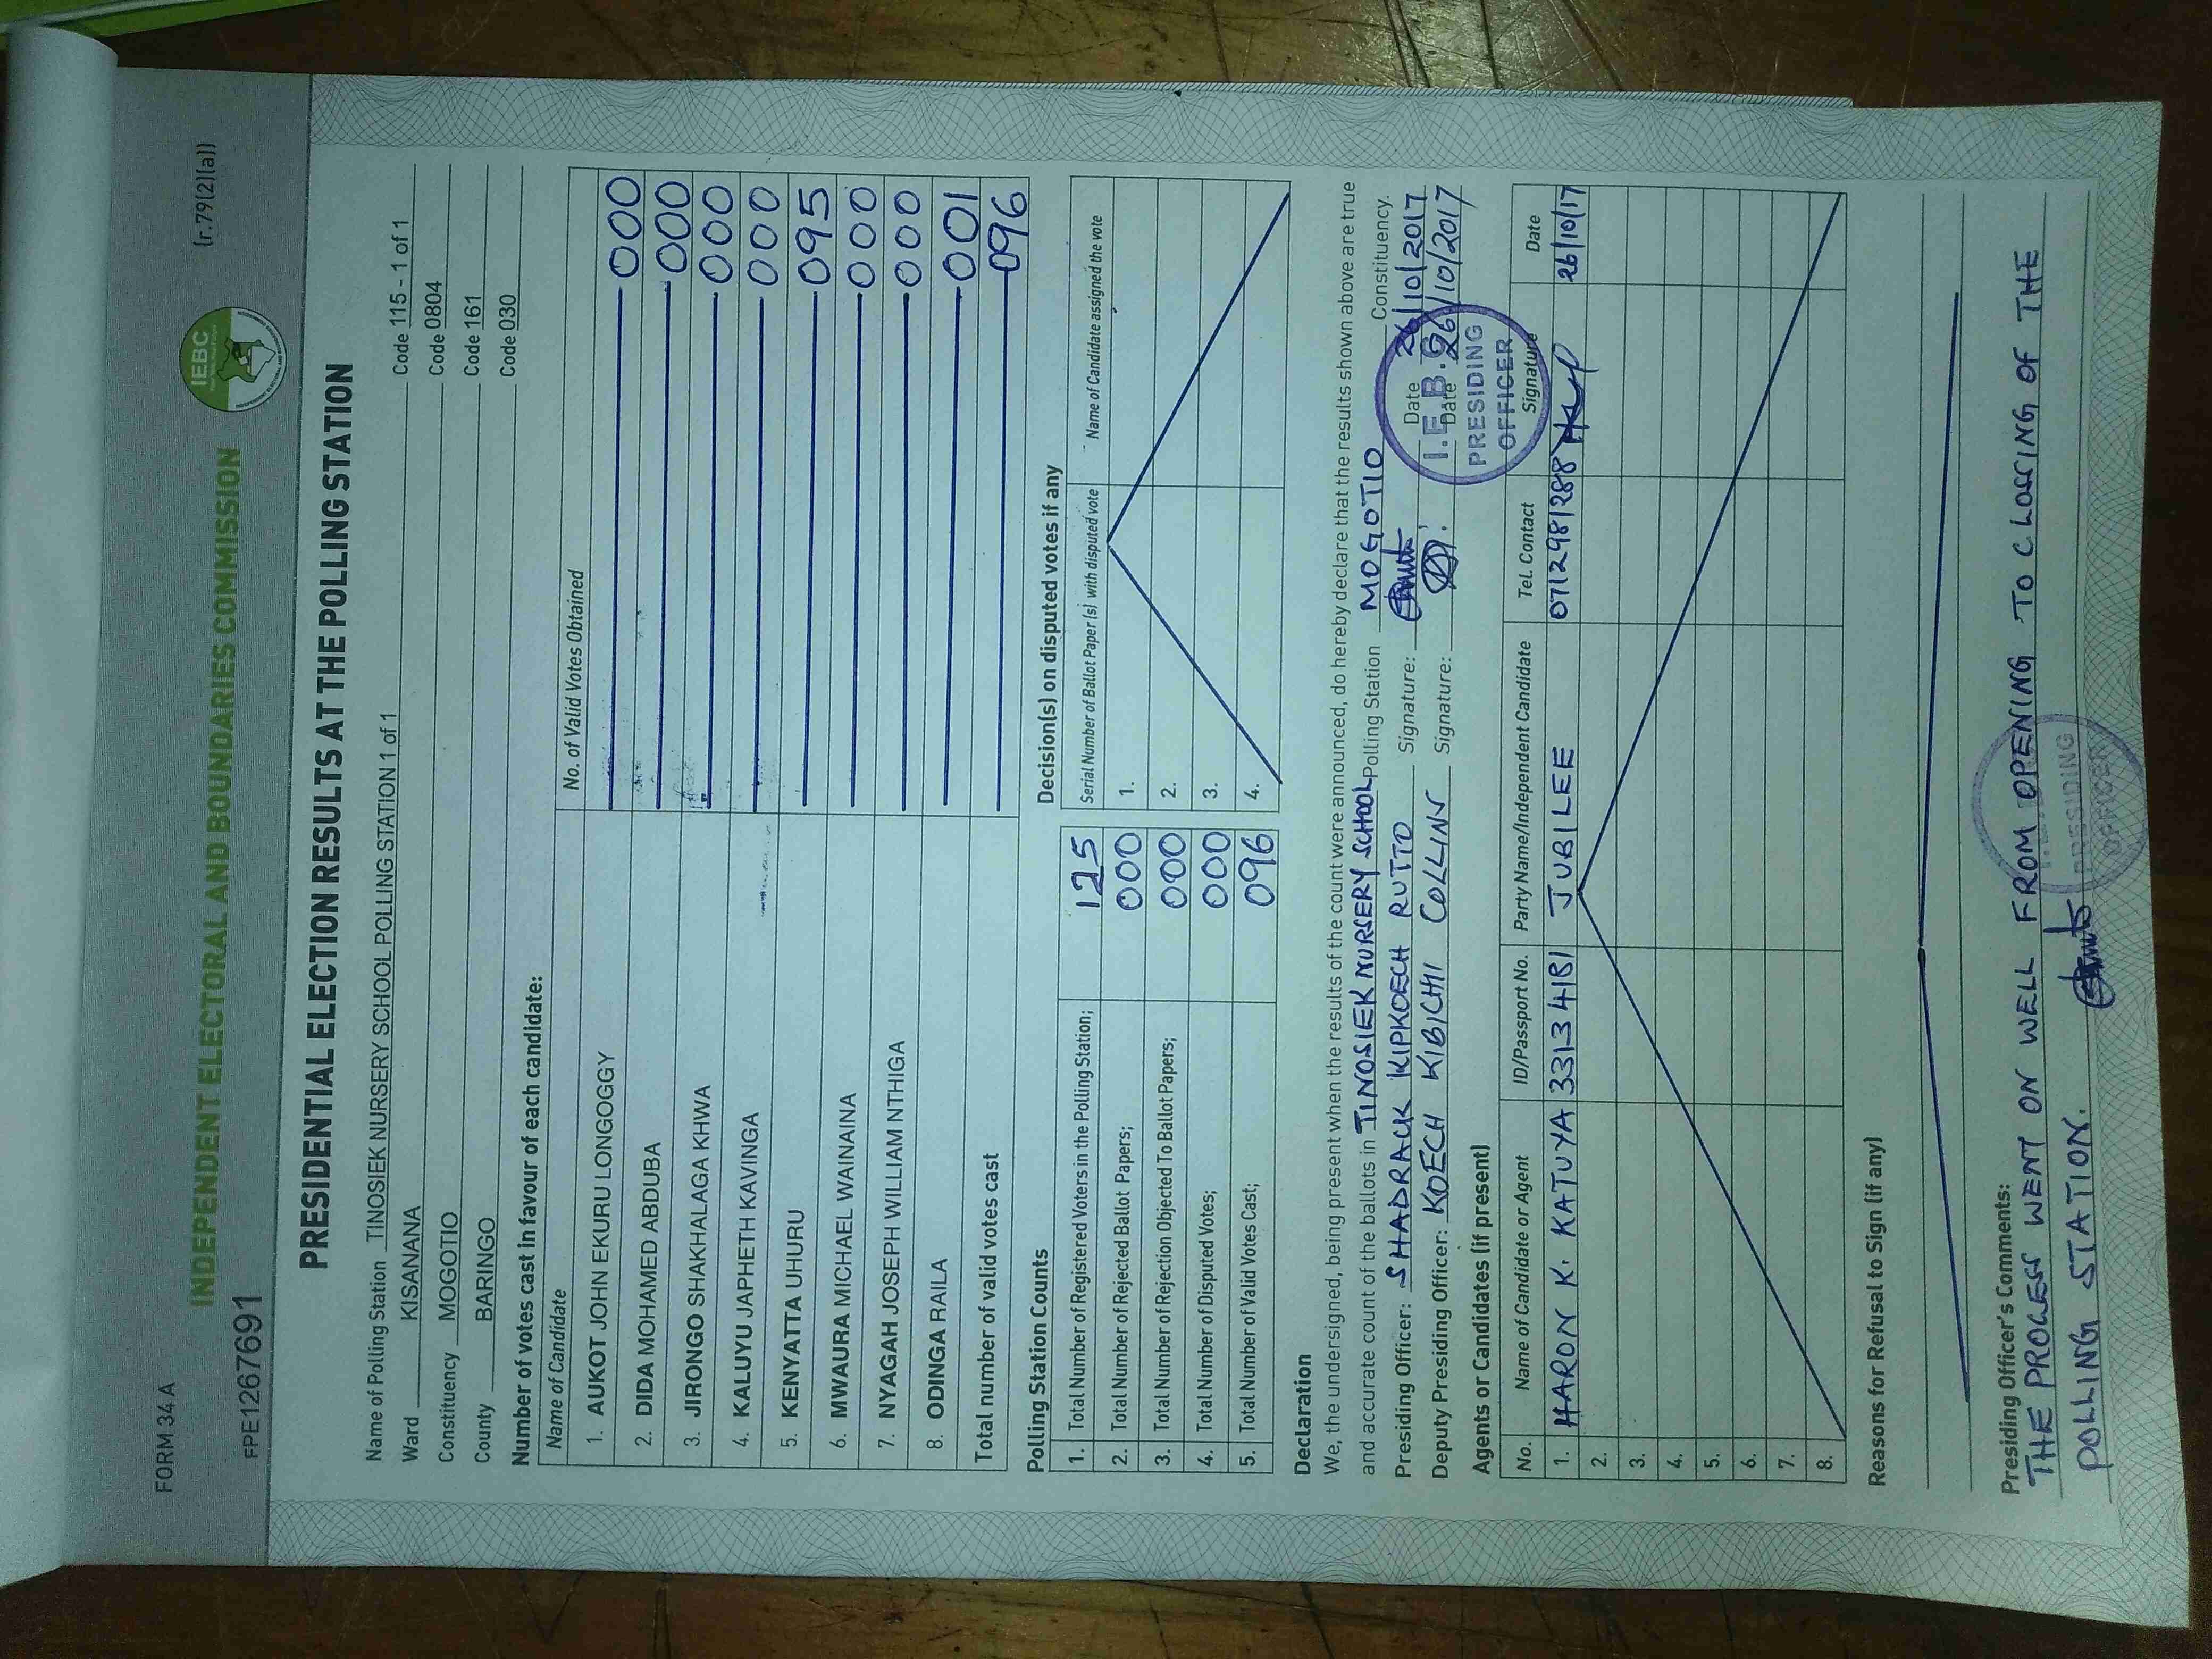 FORM 34 A
(r.79(2)(a))
IEBC
INDEPENDENT ELECTORAL AND BOUNDARIES COMMISSION
FPE1267691
PRESIDENTIAL ELECTION RESULTS AT THE POLLING STATION
Name of Polling Station TINOSIEK NURSERY SCHOOL POLLING STATION 1 of 1 Code 115 - 1 of 1
Ward KISANANA Code 0804
Constituency MOGOTIO Code 161
County BARINGO Code 030
Number of votes cast in favour of each candidate:
Name of Candidate No. of Valid Votes Obtained
1. AUKOT JOHN EKURU LONGOGGY 000
2. DIDA MOHAMED ABDUBA 000
3. JIRONGO SHAKHALAGA KHWA 000
4. KALUYU JAPHETH KAVINGA 000
5. KENYATTA UHURU 095
6. MWAURA MICHAEL WAINAINA 000
7. NYAGAH JOSEPH WILLIAM NTHIGA 000
8. ODINGA RAILA 001
Total number of valid votes cast 096
Polling Station Counts
1. Total Number of Registered Voters in the Polling Station; 125
2. Total Number of Rejected Ballot Papers; 000
3. Total Number of Rejection Objected To Ballot Papers; 000
4. Total Number of Disputed Votes; 000
5. Total Number of Valid Votes Cast; 096
Decision(s) on disputed votes if any
Serial Number of Ballot Paper (s) with disputed vote Name of Candidate assigned the vote
1.
2.
3.
4.
Declaration
We, the undersigned, being present when the results of the count were announced, do hereby declare that the results shown above are true
and accurate count of the ballots in TINOSIEK NURSERY SCHOOL Polling Station MOGOTIO Constituency.
Presiding Officer: SHADRACK KIPKOECH RUTTO Signature: Date 26/10/2017
Deputy Presiding Officer: KOECH KIBICHI COLLINS Signature: Date 26/10/2017
I.E.B.C
PRESIDING
OFFICER
Agents or Candidates (if present)
No. Name of Candidate or Agent ID/Passport No. Party Name/Independent Candidate Tel. Contact Signature Date
1. HARON K. KATUYA 33134181 JUBILEE 0712981288 26/10/17
2.
3.
4.
5.
6.
7.
8.
Reasons for Refusal to Sign (if any)
Presiding Officer's Comments:
THE PROCESS WENT ON WELL FROM OPENING TO CLOSSING OF THE
POLLING STATION.
PRESIDING
OFFICER